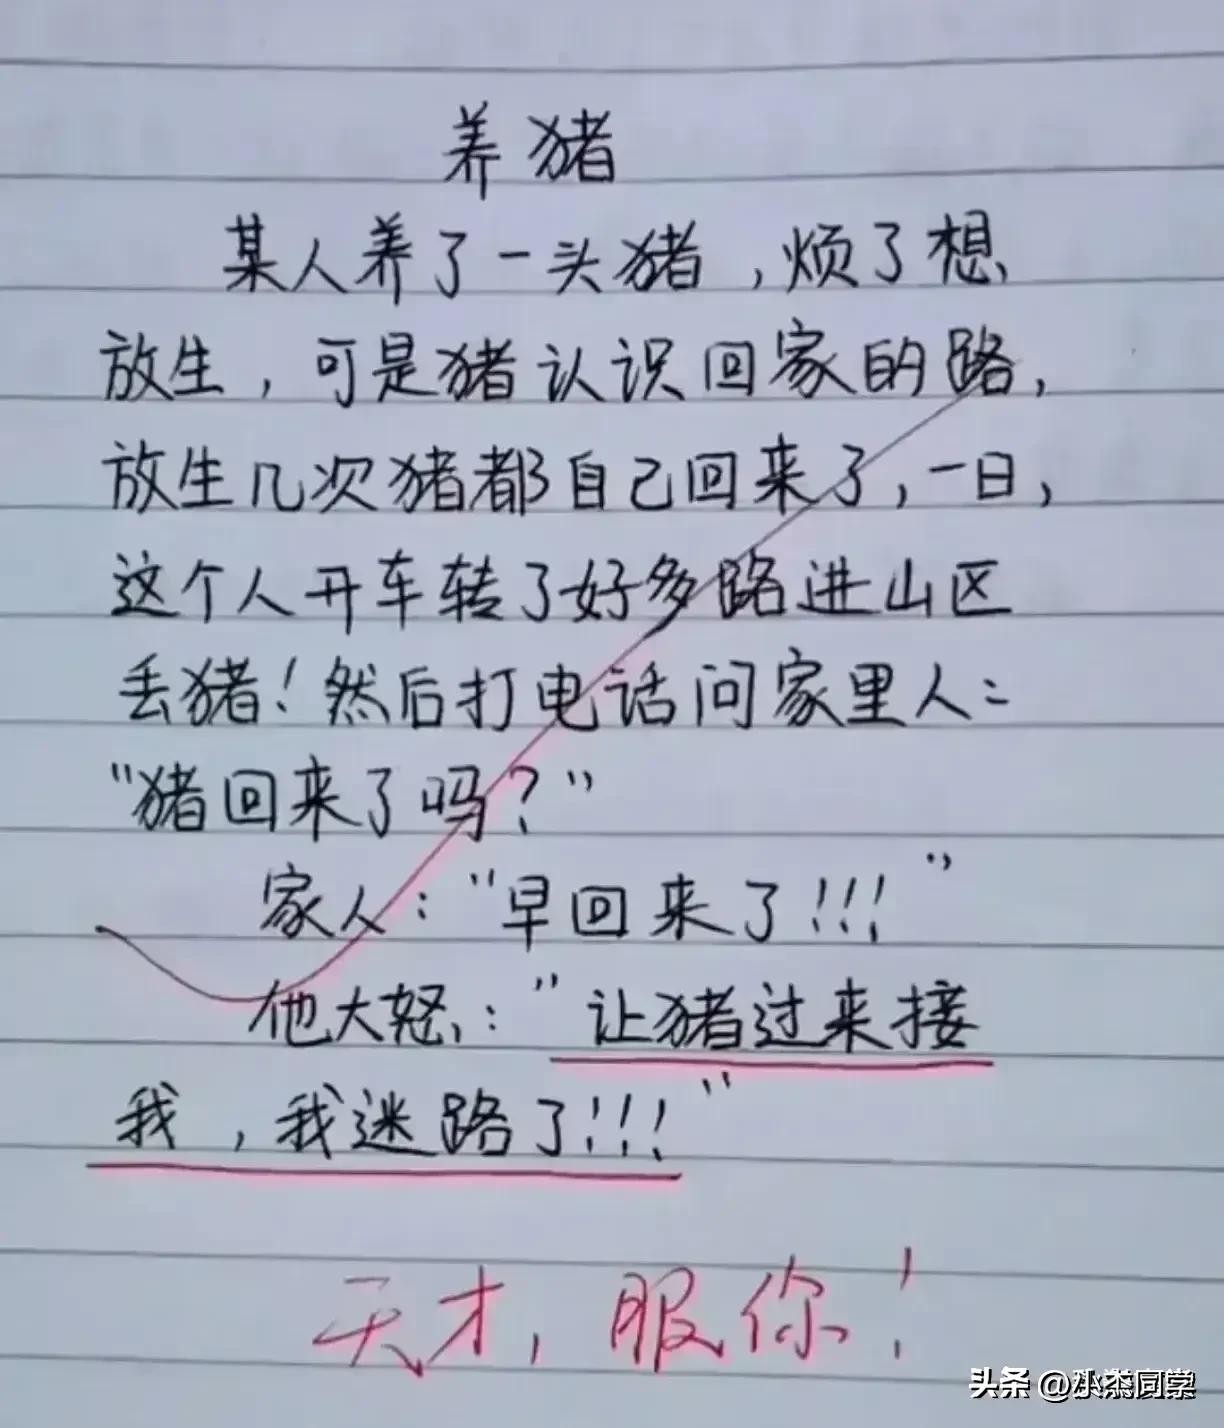 养猪
某人养了一头猪，烦了想
放生，可是猪认识回家的路，
放生几次猪都自己回来了，一日，
这个人开车转了好多路进山区
丢猪！然后打电话问家里人：
“猪回来了吗？”
家人：“早回来了！！！”
他大怒：“让猪过来接
我，我迷路了！！！”
天才，服你！
头条 @